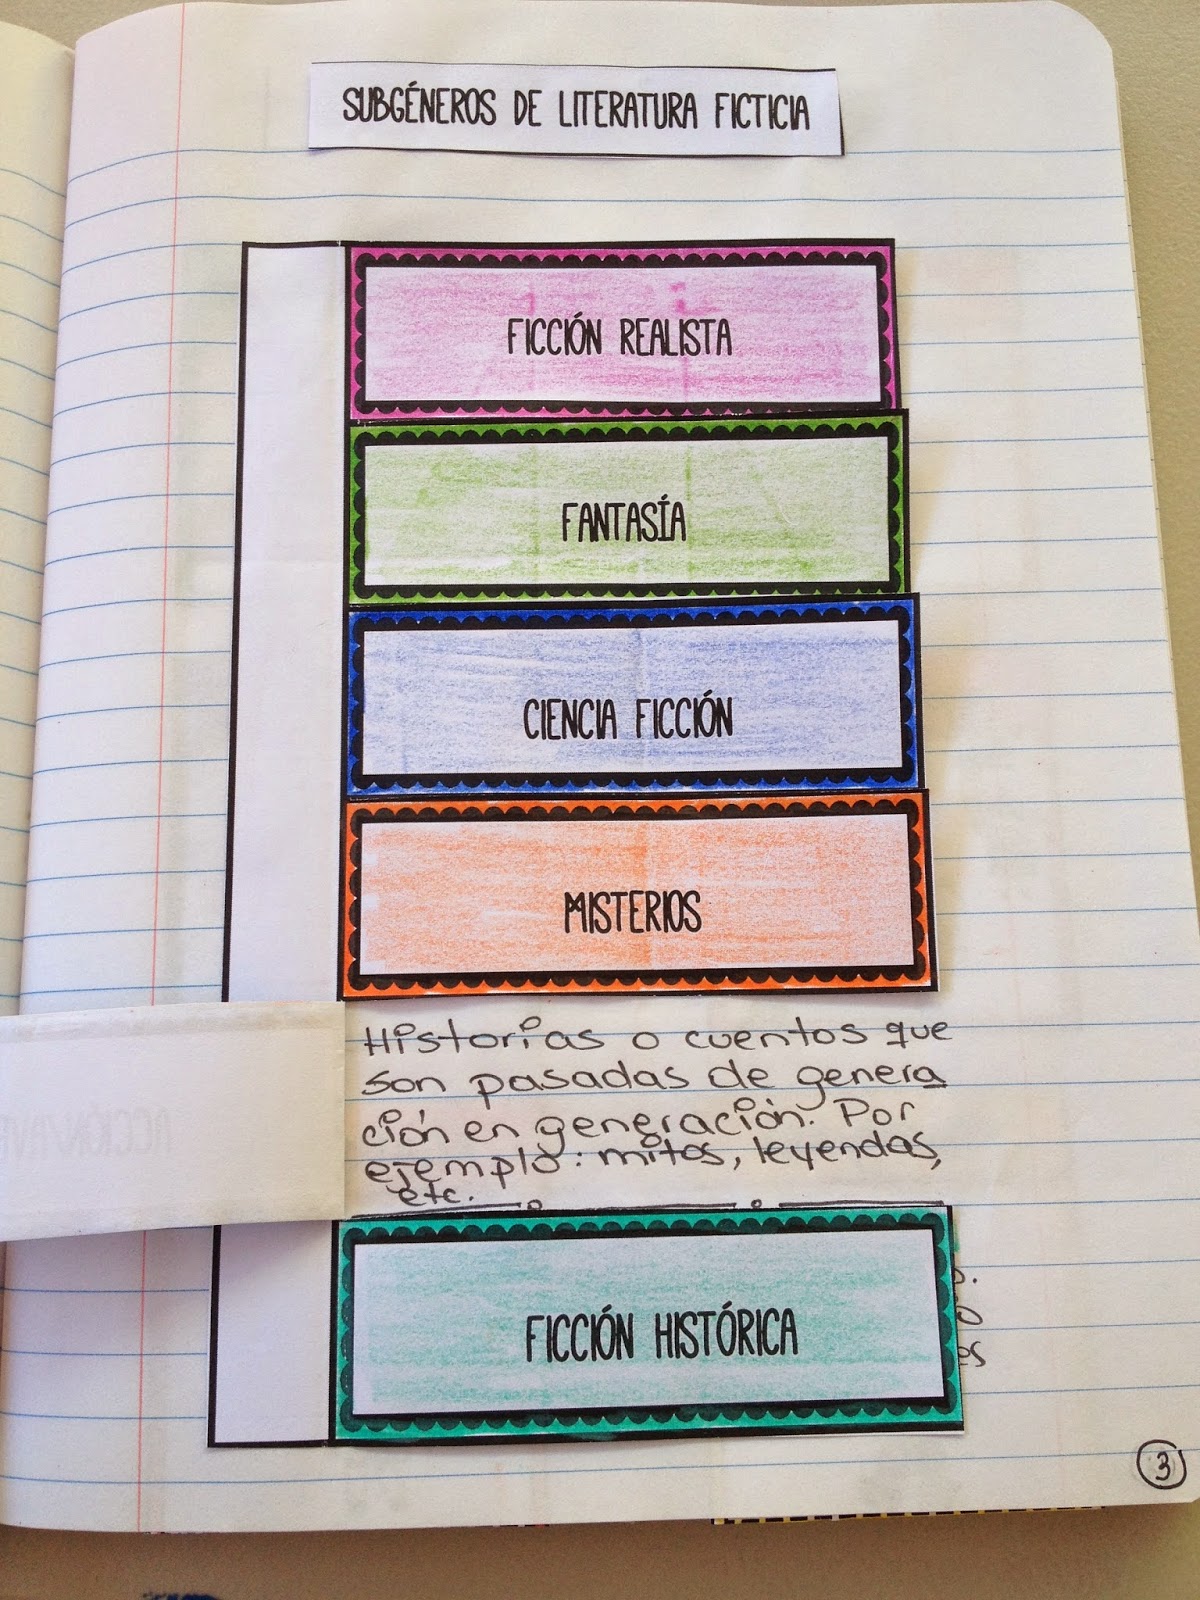 SUBGÉNEROS DE LITERATURA FICTICIA
FICCIÓN REALISTA
FANTASÍA
CIENCIA FICCIÓN
MISTERIOS
Historias o cuentos que
son pasadas de genera
ción en generación. Por
ejemplo: mitos, leyendas,
etc.
FICCIÓN HISTÓRICA
3